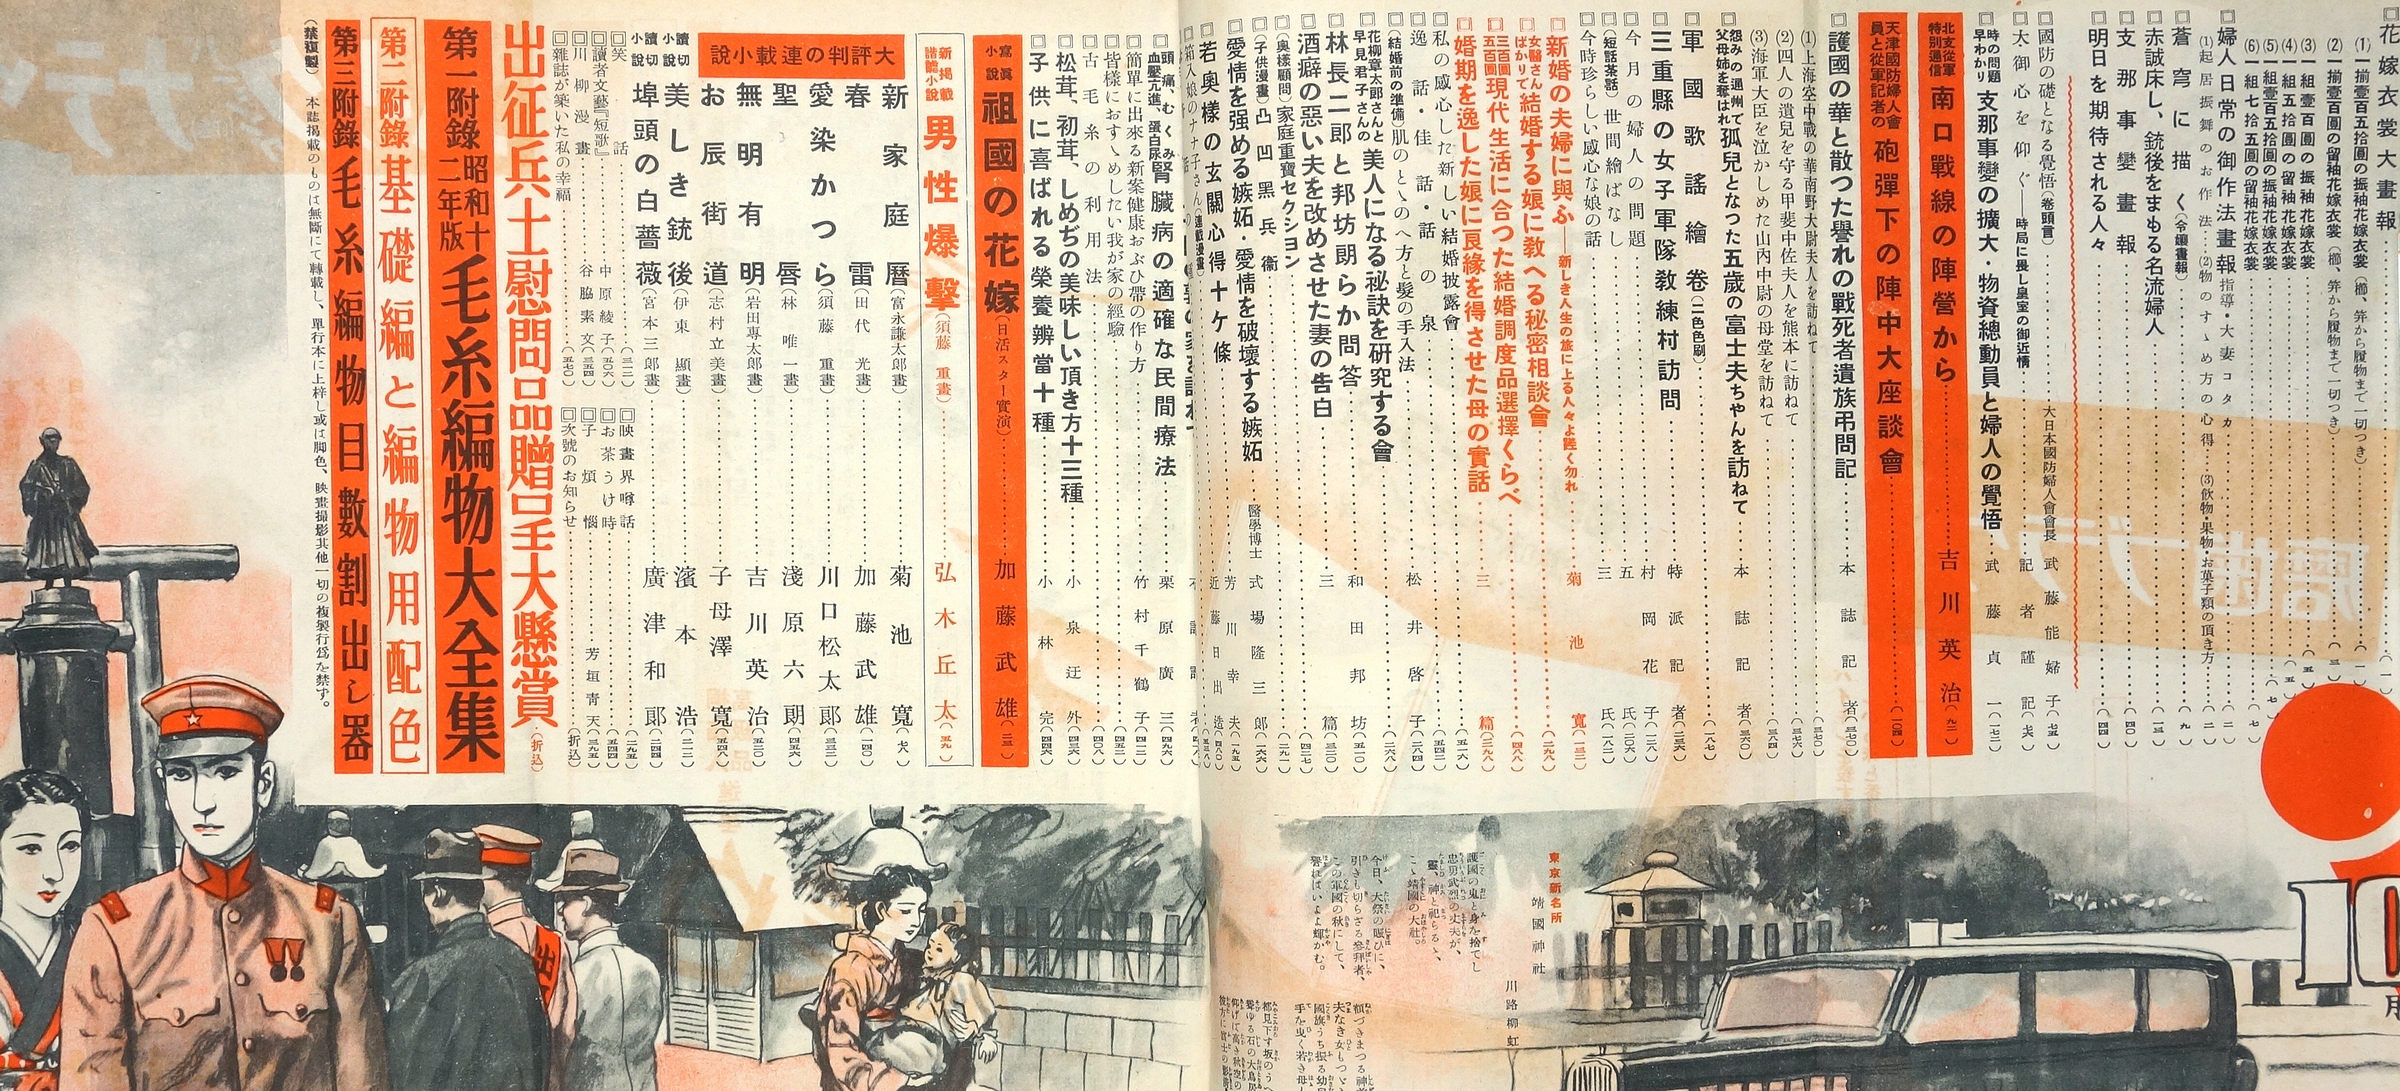 花嫁衣裳大畫報
(1)一揃壹百五拾圓の振袖花嫁衣裳(櫛、笄から履物まで一切つき)
(2)一揃壹百圓の留袖花嫁衣裳(櫛、笄から履物まで一切つき)
(3)一組壹百圓の振袖花嫁衣裳
(4)一組五拾圓の留袖花嫁衣裳
(5)一組壹百五拾圓の振袖花嫁衣裳
(6)一組七拾五圓の留袖花嫁衣裳
婦人日常の御作法畫報 指導・大妻コタカ
(1)起居振舞のお作法 (2)物のすゝめ方の心得 (3)飲物・果物・お菓子類の頂き方
蒼穹に描く(令孃畫報)
赤誠床し、銃後をまもる名流婦人
支那事變畫報
明日を期待される人々
國防の礎となる覺悟(卷頭言) 大日本國防婦人會會長 武藤能婦子
大御心を仰ぐ──時局に畏し皇室の御近情 記者謹記
時の問題早わかり 支那事變の擴大・物資總動員と婦人の覺悟 武藤貞一
北支從軍特別通信 南口戰線の陣營から 吉川英治
天津國防婦人會員と從軍記者の 砲彈下の陣中大座談會
護國の華と散つた譽れの戰死者遺族弔問記 本誌記者
(1)上海空中戰の華南野大尉夫人を訪ねて
(2)四人の遺兒を守る甲斐中佐夫人を熊本に訪ねて
(3)海軍大臣を泣かしめた山内中尉の母堂を訪ねて
怨みの通州で父母姉を奪はれ 孤兒となつた五歳の富士夫ちゃんを訪ねて 本誌記者
軍國歌謠繪卷(二色色刷)
三重縣の女子軍隊敎練村訪問 特派記者
今月の婦人の問題 村岡花子
(短話茶話)世間繪ばなし 五氏
今時珍らしい感心な娘の話 三氏
新婚の夫婦に與ふ──新しき人生の旅に上る人々よ躓く勿れ 菊池寬
女醫さんばかりで 結婚する娘に敎へる秘密相談會
三百圓五百圓 現代生活に合つた結婚調度品選擇くらべ
婚期を逸した娘に良緣を得させた母の實話 三篇
私の感心した新しい結婚披露會
逸話・佳話・話の泉 松井啓子
(結婚前の準備)肌のとゝのへ方と髮の手入法
花柳章太郎さんと早見君子さんの 美人になる秘訣を研究する會
林長二郎と邦坊朗らか問答 和田邦坊
酒癖の惡い夫を改めさせた妻の告白 三篇
(奥樣顧問)家庭重寶セクション
(子供漫畫)凸凹黑兵衞
愛情を强める嫉妬・愛情を破壞する嫉妬 醫學博士 式場隆三郎
若奥樣の玄關心得十ケ條
頭痛、むくみ、血壓亢進、蛋白尿 腎臓病の適確な民間療法 栗原廣三
簡單に出來る新案健康おぶひ帶の作り方 竹村千鶴子
皆樣におすゝめしたい我が家の經驗
古毛糸の利用法
松茸、初茸、しめぢの美味しい頂き方十三種 小泉迂外
子供に喜ばれる榮養辨當十種 小林完
寫眞小說 祖國の花嫁(日活スター實演) 加藤武雄
新揭載諧謔小說 男性爆擊(須藤重畫) 弘木丘太
大評判の連載小說
新家庭曆(富永謙太郎畫) 菊池寬
春雷(田代光畫) 加藤武雄
愛染かつら(須藤重畫) 川口松太郎
聖唇(林唯一畫) 淺原六朗
無明有明(岩田專太郎畫) 吉川英治
お辰街道(志村立美畫) 子母澤寬
讀切小說 美しき銃後(伊東顯畫) 濱本浩
讀切小說 埠頭の白薔薇(宮本三郎畫) 廣津和郎
笑話
讀者文藝『短歌』 中原綾子
川柳漫畫 谷脇素文
雜誌が築いた私の幸福
映畫界噂話
お茶うけ時
子煩惱 芳垣青天
次號のお知らせ(折込)
出征兵士慰問品贈呈大懸賞(折込)
第一附錄 昭和十二年版 毛糸編物大全集
第二附錄 基礎編と編物用配色
第三附錄 毛糸編物目數割出し器
(禁複製) 本誌揭載のものは無斷にて轉載し、單行本に上梓し或は脚色、映畫撮影其他一切の複製行爲を禁ず。
東京新名所
靖國神社
川路柳虹
護國の鬼と身を捨てし
忠勇武烈の丈夫が、
靈、神と祀らるゝ、
こゝ靖國の大社。
今日、大祭の賑ひに、
引きも切らざる參拜者、
この軍國の秋にして、
譽れはいよよ輝かむ。
10
月
出